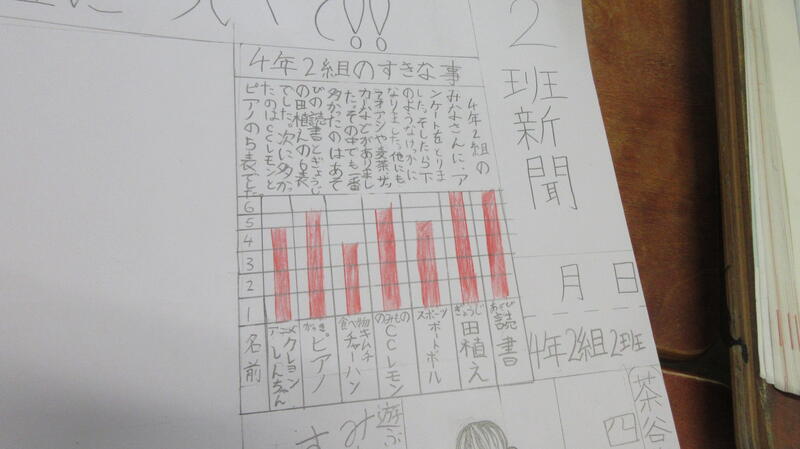 2班新聞
月 日
4年2組2班
茶谷
四
4年2組のすきな事
4年2組の
みなさんに、ア
ンケートをとりま
した。そしたら下
のようなけっかに
なりました。他にも
アオアシや麦茶、サッ
カーなどがありまし
た。その中でも一番
多かったのはあそ
びの読書とぎょうじ
の田植えの6表
でした。次に多かっ
たのはCCレモンと
ピアノの5表でした
6
5
4
3
2
1
名前
あそび
読書
ぎょうじ
田植え
スポーツ
ポートボール
のみもの
CCレモン
食べ物
キムチ
チャーハン
がっき
ピアノ
アニメ
クレヨン
しんちゃん
遊ぶ